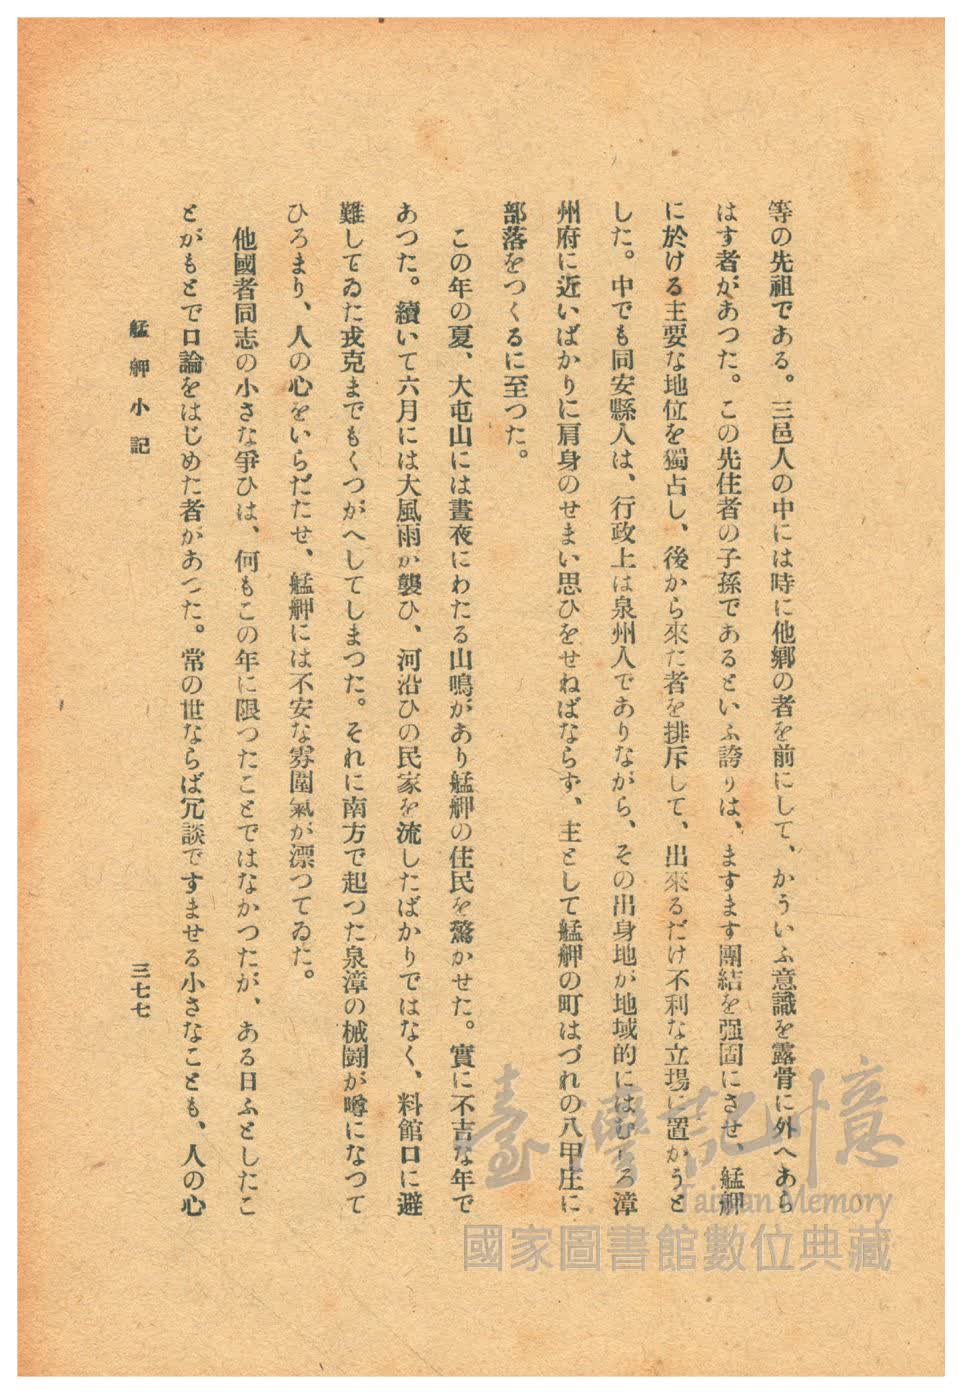 等の先祖である。三邑人の中には時に他鄕の者を前にして、かういふ意識を露骨に外へあら
はす者があつた。この先住者の子孫であるといふ誇りは、ますます團結を强固にさせ、艋舺
に於ける主要な地位を獨占し、後から來た者を排斥して、出來るだけ不利な立場に置かうと
した。中でも同安縣人は、行政上は泉州人でありながら、その出身地が地域的にはむしろ漳
州府に近いばかりに肩身のせまい思ひをせねばならず、主として艋舺の町はづれの八甲庄に
部落をつくるに至つた。
この年の夏、大屯山には晝夜にわたる山鳴があり艋舺の住民を驚かせた。實に不吉な年で
あつた。續いて六月には大風雨が襲ひ、河沿ひの民家を流したばかりではなく、料館口に避
難してゐた戎克までもくつがへしてしまつた。それに南方で起つた泉漳の械鬪が噂になつて
ひろまり、人の心をいらだたせ、艋舺には不安な雰圍氣が漂つてゐた。
他國者同志の小さな爭ひは、何もこの年に限つたことではなかつたが、ある日ふとしたこ
とがもとで口論をはじめた者があつた。常の世ならば冗談ですませる小さなことも、人の心
艋舺小記
三七七
臺灣記憶
Taiwan Memory
國家圖書館數位典藏